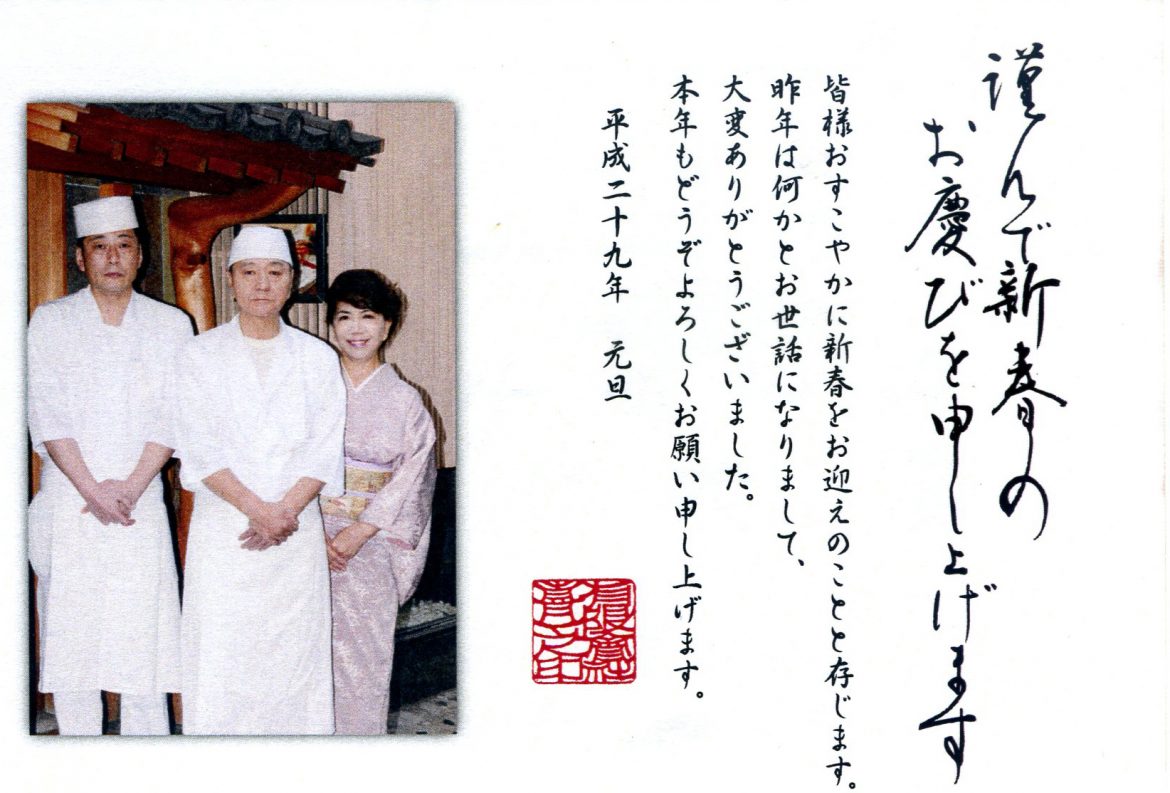 謹んで新春の
お慶びを申し上げます
皆様おすこやかに新春をお迎えのことと存じます。
昨年は何かとお世話になりまして、
大変ありがとうございました。
本年もどうぞよろしくお願い申し上げます。
平成二十九年　元旦